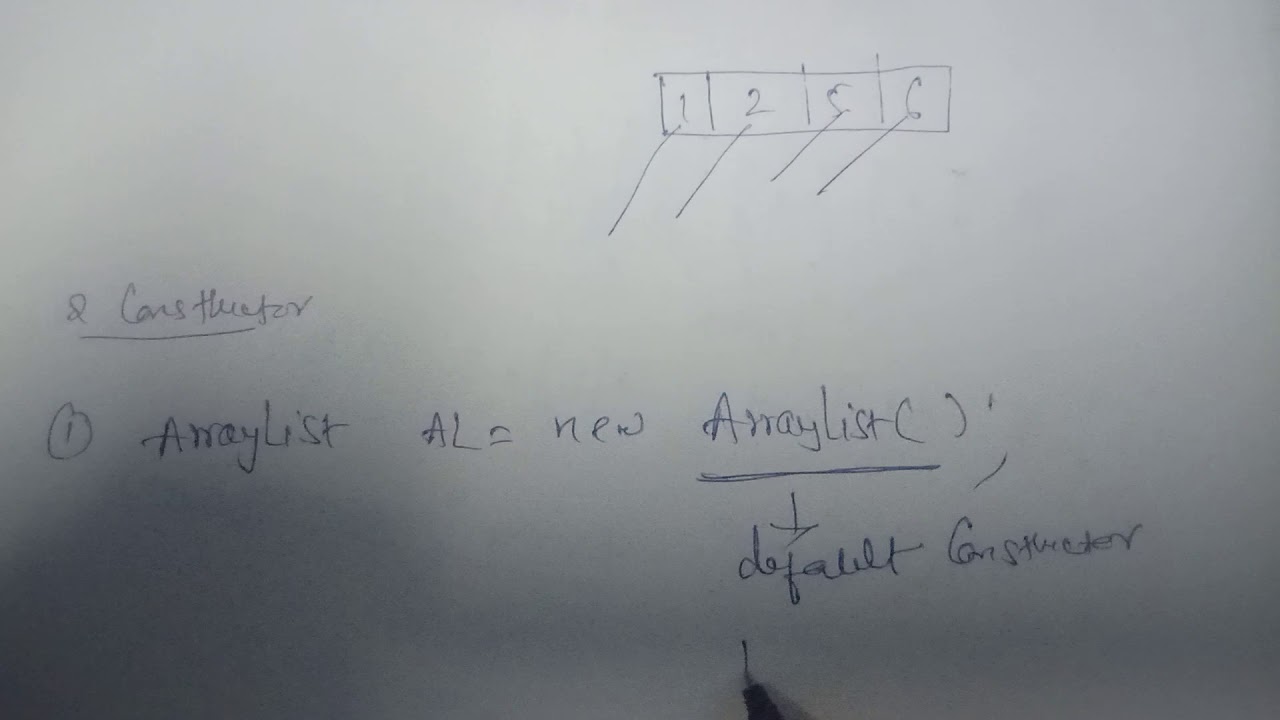 1 2 5 6
& Constructor
① ArrayList AL = new ArrayList();
default Constructor